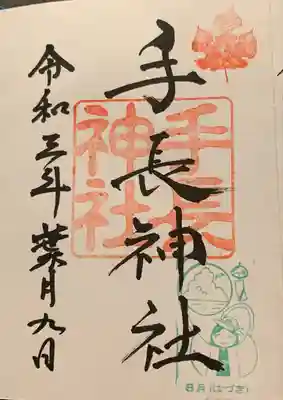 手長神社
令和三年葉月九日
手長
神社
8月(はづき)